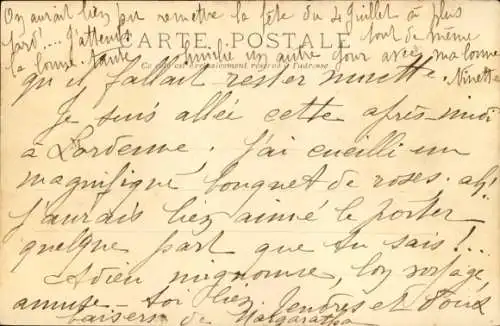 On aurait bien pu remettre la fête du 4 Juillet à plus
tard!.... J'attends tout de même
CARTE POSTALE
la bonne tante Emilie un autre jour avec ma bonne
Ce côté est exclusivement réservé à l'adresse
Ninette
qu'il fallait rester muette.
Je suis allée cette après-midi
à Lardenne. J'ai cueilli un
magnifique bouquet de roses. ah!
j'aurais bien aimé le porter
quelque part que tu sais!...
Adieu mignonne, bon voyage,
amuse-toi bien. Tendres et doux
baisers de